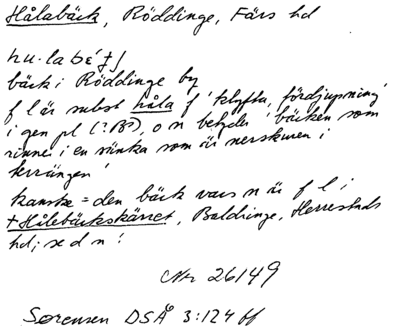 Hålabäck, Röddinge, Färs hd
bäck i Röddinge by
f l är subst håla f 'klyfta, fördjupning'
i gen pl (?), o n betyder 'bäcken som
rinner i en sänka som är nerskuren i
terrängen'
kanske = den bäck vars n är f l i
+Hålebäckskärret, Baldringe, Herrestads
hd; se d n!
Nr 26149
Sørensen DSÅ 3:124 ff